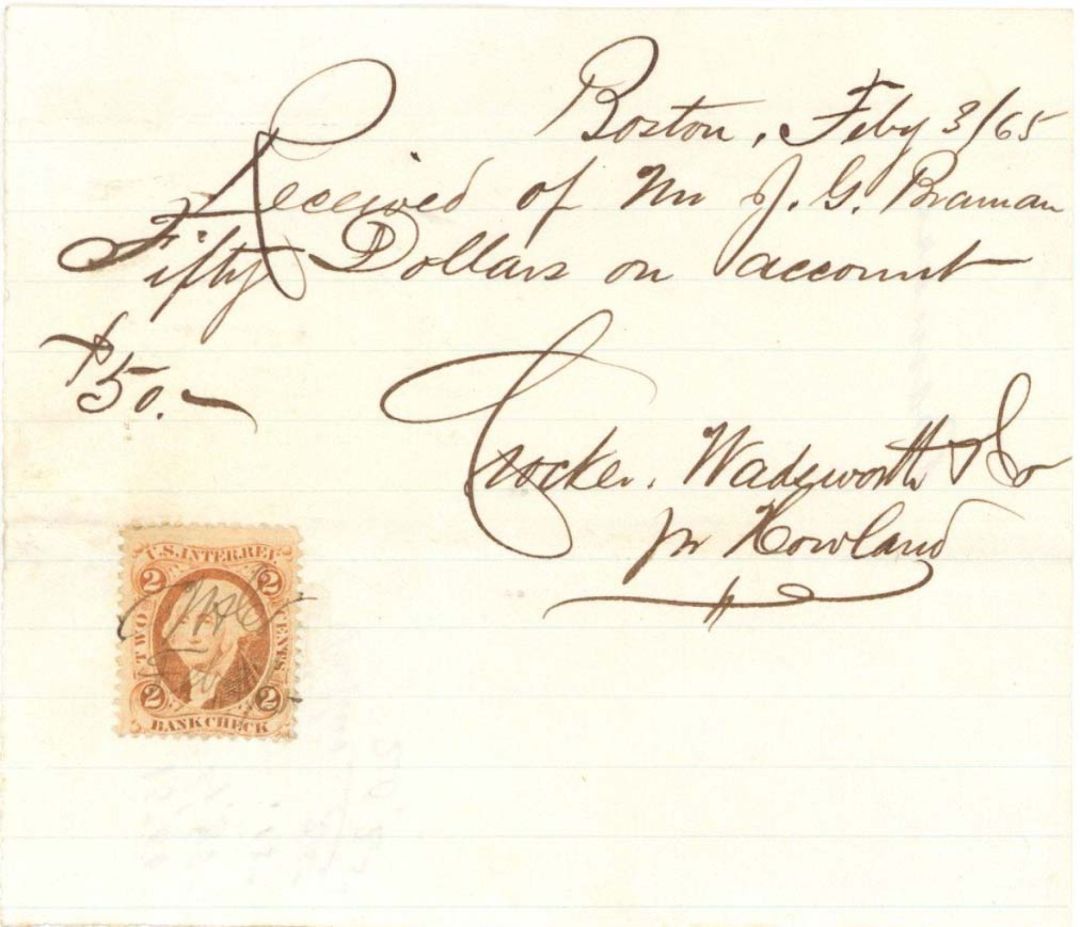 Boston, Feby 3/65
Received of Mr J. G. Braman
Fifty Dollars on account
$50.—
Crocker, Wadsworth & Co
pr Howland
U.S. INTER. REV.
2 2
TWO CENTS
2 2
BANK CHECK